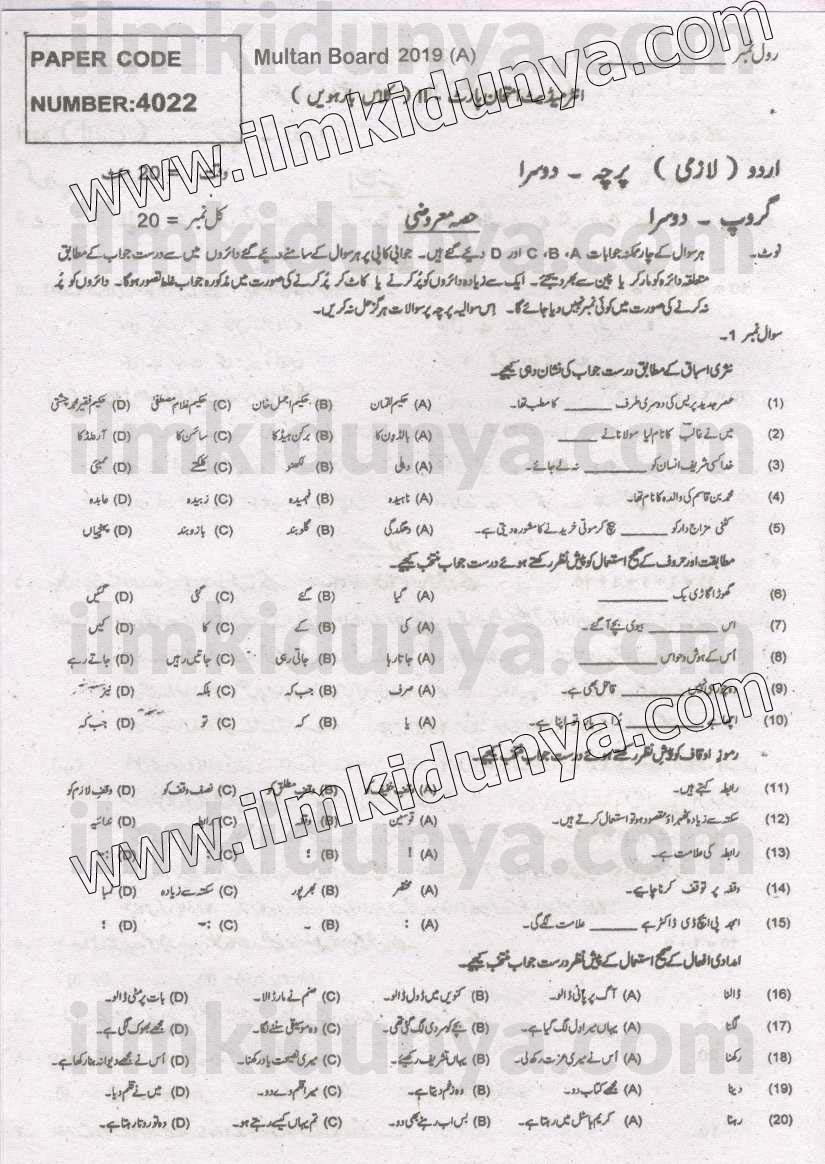 PAPER CODE
NUMBER:4022
Multan Board 2019 (A)
رول نمبر
انٹرمیڈیٹ امتحان پارٹ - II ( کلاس بارہویں )
اردو ( لازمی ) پرچہ - دوسرا
وقت = 20 منٹ
گروپ - دوسرا
حصہ معروضی
کل نمبر = 20
نوٹ۔ ہر سوال کے چار ممکنہ جوابات A، B، C اور D دیئے گئے ہیں۔ جوابی کاپی پر ہر سوال کے سامنے دیئے گئے دائروں میں سے درست جواب کے مطابق
متعلقہ دائرہ کو مارکر یا پین سے بھر دیجئے۔ ایک سے زیادہ دائروں کو پُر کرنے یا کاٹ کر پُر کرنے کی صورت میں مذکورہ جواب غلط تصور ہوگا۔ دائروں کو پُر
نہ کرنے کی صورت میں کوئی نمبر نہیں دیا جائے گا۔ اِس سوالیہ پرچہ پر سوالات ہرگز حل نہ کریں۔
سوال نمبر 1۔
نثری اسباق کے مطابق درست جواب کی نشان دہی کیجیے۔
(1) عصرِ جدید پریس کی دوسری طرف ______ کا مطب تھا۔ (A) حکیم لقمان (B) حکیم اجمل خان (C) حکیم غلام مصطفٰی (D) حکیم فقیر محمد چشتی
(2) میں نے غالب کا نام لیا مولانا نے ______ (A) بالڈون کا (B) برکن ہیڈ کا (C) سائمن کا (D) آرنلڈ کا
(3) خدا کسی شریف انسان کو ______ نہ لے جائے۔ (A) دہلی (B) لکھنو (C) کلکتے (D) ممبئی
(4) محمد بن قاسم کی والدہ کا نام تھا۔ (A) ناہیدہ (B) فہمیدہ (C) زبیدہ (D) عابدہ
(5) مزاج دار کو ______ بیچ کر موتی خریدنے کا مشورہ دیتی ہے۔ (A) دھگدگی (B) گلوبند (C) بازوبند (D)
مطابقت اور حروف کے صحیح استعمال کو پیشِ نظر رکھتے ہوئے درست جواب منتخب کیجیے۔
(6) گھوڑا گاڑی بِک ______ (A) گیا (B) گئے (C) گئی (D) گئیں
(7) اس ______ بیوی بچے آ گئے۔ (A) کی (B) کے (C) کا (D) کیں
(8) اُس کے ہوش و حواس ______ (A) جاتا رہا (B) جاتی رہی (C) جاتیں رہیں (D) جاتے رہے
(9) ______ قاتل بھی ہے۔ (A) صرف (B) جب کہ (C) بلکہ (D) نیز
(10) اچھا ہے ______ بُرا ہے اپنا ہے۔ (A) یا (B) کہ (C) تو (D) جب کہ
رموزِ اوقاف کو پیشِ نظر رکھتے ہوئے درست جواب منتخب کیجیے۔
(11) رابطہ کہتے ہیں۔ (A) (B) وقفِ مطلق کو (C) نصف وقف کو (D) وقفِ لازم کو
(12) سکتہ سے زیادہ ٹھہراؤ مقصود ہو تو استعمال کرتے ہیں۔ (A) قوسین (B) وقفہ (C) رابطہ (D) ندائیہ
(13) رابطہ کی علامت ہے۔ (A) ! (B) ؛ (C) : (D)
(14) وقفہ پر توقف کرنا چاہیے۔ (A) مختصر (B) بھرپور (C) سکتہ سے زیادہ (D) لمبا
(15) امجد پی ایچ ڈی ڈاکٹر ہے ______ علامت لگے گی۔ (A) : (B) ۔ (C) :- (D) ؛
امدادی افعال کے صحیح استعمال کے پیشِ نظر درست جواب منتخب کیجیے۔
(16) ڈالنا (A) آگ پر پانی ڈالو۔ (B) کنویں میں ڈول ڈالو۔ (C) صنم نے مار ڈالا۔ (D) بات پر مٹی ڈالو۔
(17) لگنا (A) یہاں میرا دل لگ گیا ہے۔ (B) بچے کو سردی لگ گئی تھی۔ (C) وہ موسیقی سننے لگا۔ (D) مجھے بھوک لگی ہے۔
(18) رکھنا (A) اُس نے میری عزت رکھ لی۔ (B) یہاں تشریف رکھیئے۔ (C) میری نصیحت یاد رکھنا۔ (D) اُس نے مجھے دیوانہ بنا رکھا ہے۔
(19) دینا (A) مجھے کتاب دو۔ (B) وہ زخم دیتا ہے۔ (C) میرا قلم دے دو۔ (D) میں نے قلم دیا۔
(20) رہنا (A) کریم ہاسٹل میں رہتا ہے۔ (B) بس اب رہنے بھی دو۔ (C) تم یہاں کیسے رہتے ہو۔ (D) وہ تو روتا رہتا ہے۔
www.ilmkidunya.com
www.ilmkidunya.com
ilmkidunya.com
ilmkidunya.com
ilmkidunya.com
ilmkidunya.com
ilmkidunya.com